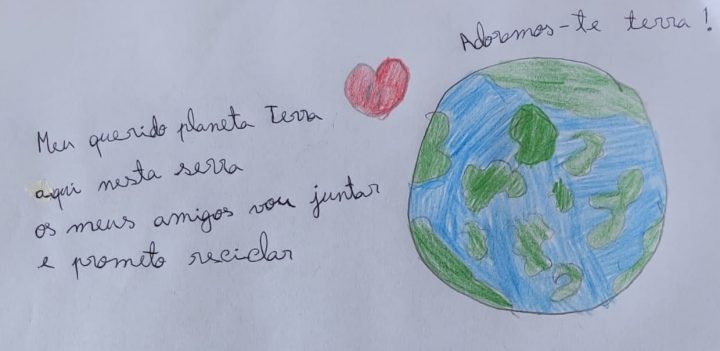 Adoramos-te terra!
Meu querido planeta Terra
aqui nesta serra
os meus amigos vou juntar
e prometo reciclar